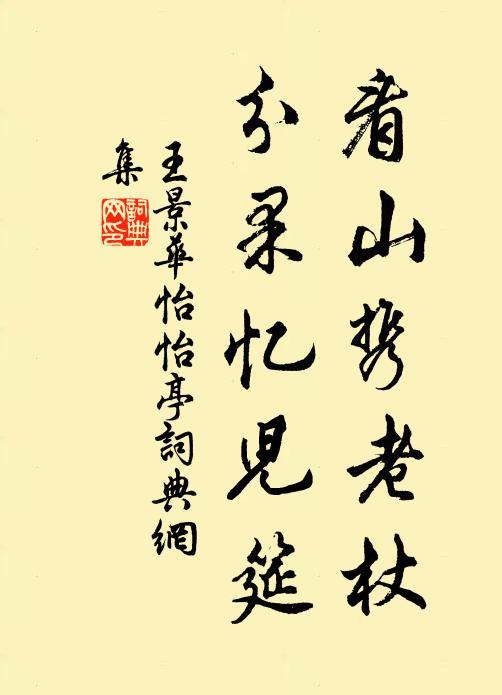 看山携老杖
分果忆儿筵
王景華怡怡亭詞典網
集
詞典
网印